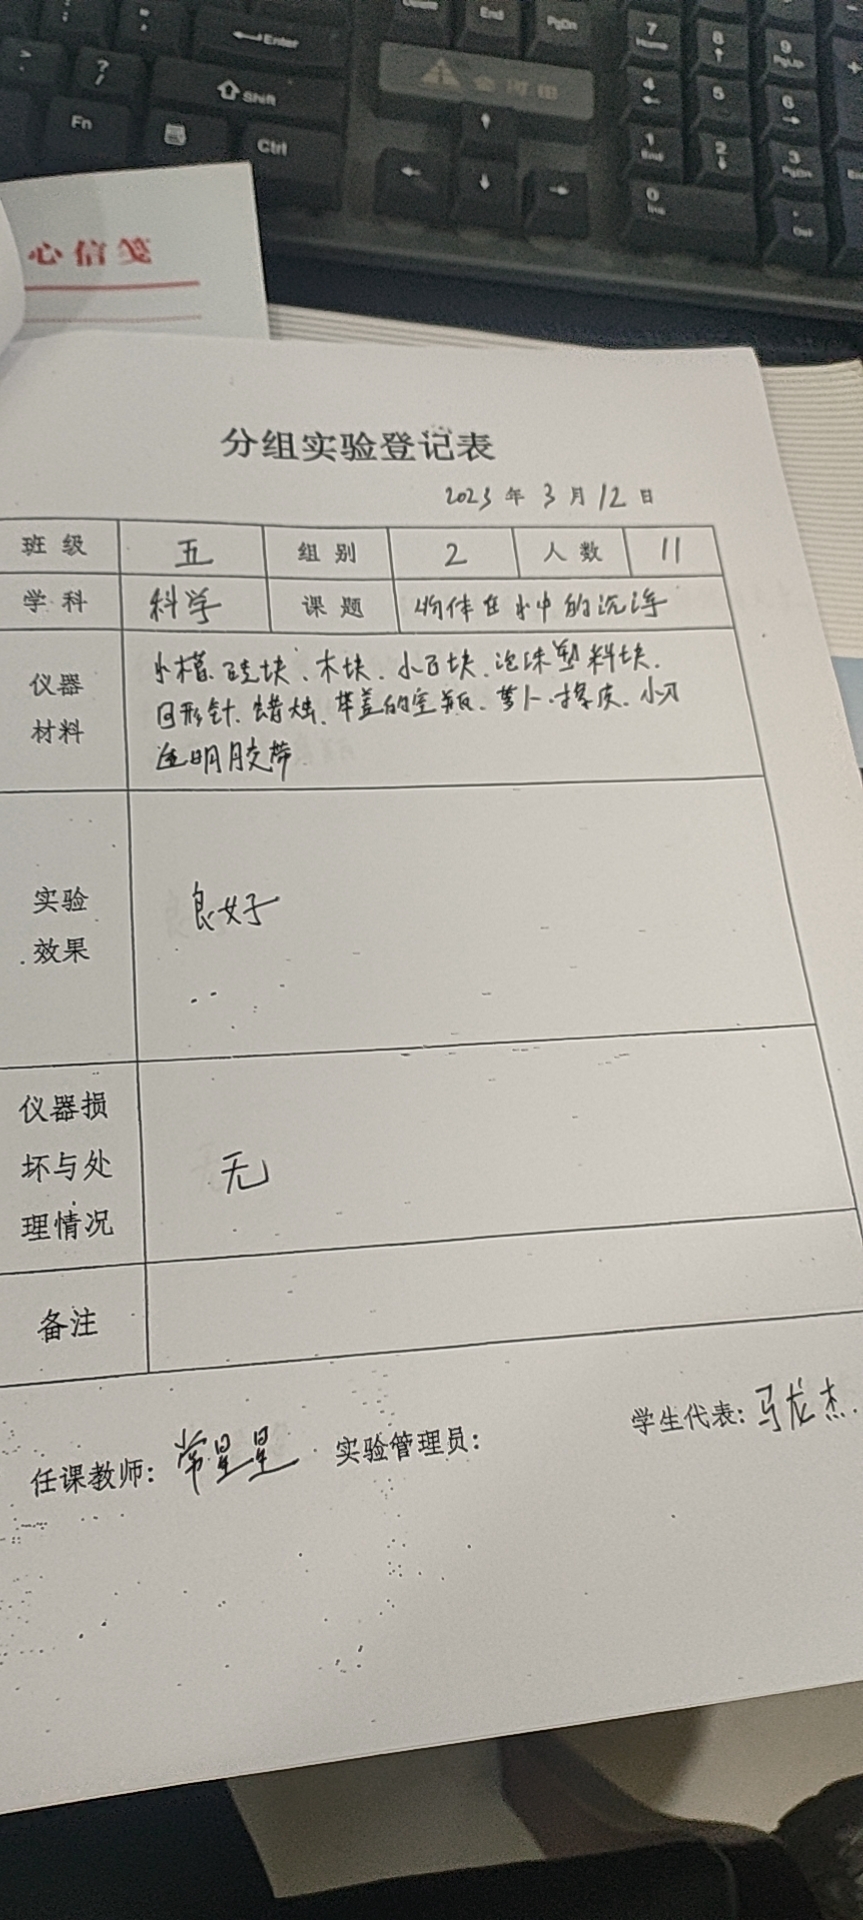 Delete
End
PgDn
7
Home
8
9
PgUp
+
Enter
?
/
Shift
4
5
6
Fn
Ctrl
1
End
2
3
PgDn
0
Ins
.
Del
心信笺
分组实验登记表
2023 年 3 月 12 日
班级 五 组别 2 人数 11
学科 科学 课题 物体在水中的沉浮
仪器材料
木块、小石块、泡沫塑料块、
回形针、蜡烛、带盖的空瓶、萝卜、橡皮、小刀
透明胶带
实验效果 良好
仪器损坏与处理情况 无
备注
任课教师: 常星星 实验管理员: 学生代表: 马龙杰